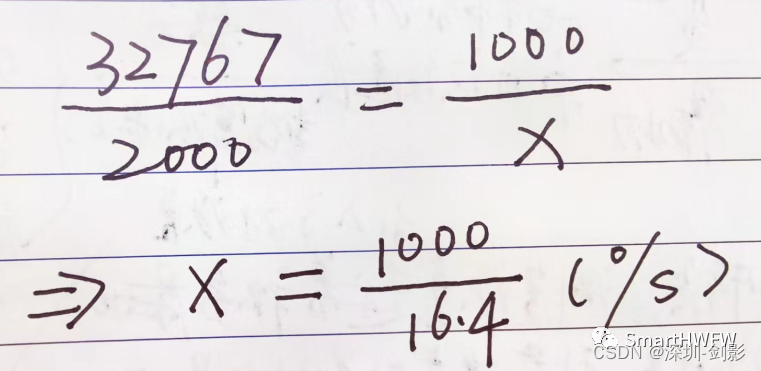 32767/2000 = 1000/X
⇒ X = 1000/16.4 (°/s)
SmartHWFW
CSDN @深圳-剑影